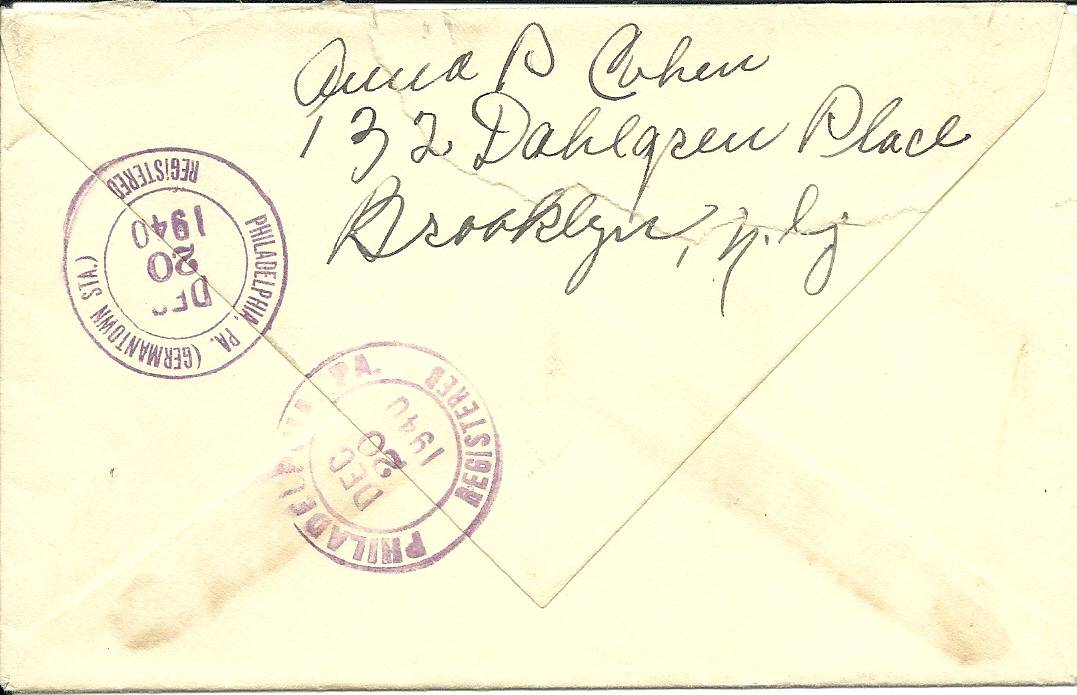 Anna P Cohen
132 Dahlgren Place
Brooklyn, N.Y
REGISTERED
PHILADELPHIA, PA. (GERMANTOWN STA.)
DEC
20
1940
PHILADELPHIA PA.
REGISTERED
DEC
20
1940